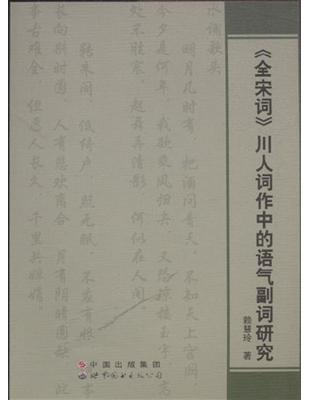 《全宋词》川人词作中的语气副词研究
赖慧玲 著
水调歌头
明月几时有，把酒问青天。不知天上宫阙
今夕是何年。我欲乘风归去，又恐琼楼玉宇，高
处不胜寒。起舞弄清影 何似在人间。
转朱阁，低绮户，照无眠。不应有恨，
长向别时圆 人有悲欢离合 月有阴晴圆缺 此
事古难全，但愿人长久，千里共婵娟。
中国出版集团
世界图书出版公司